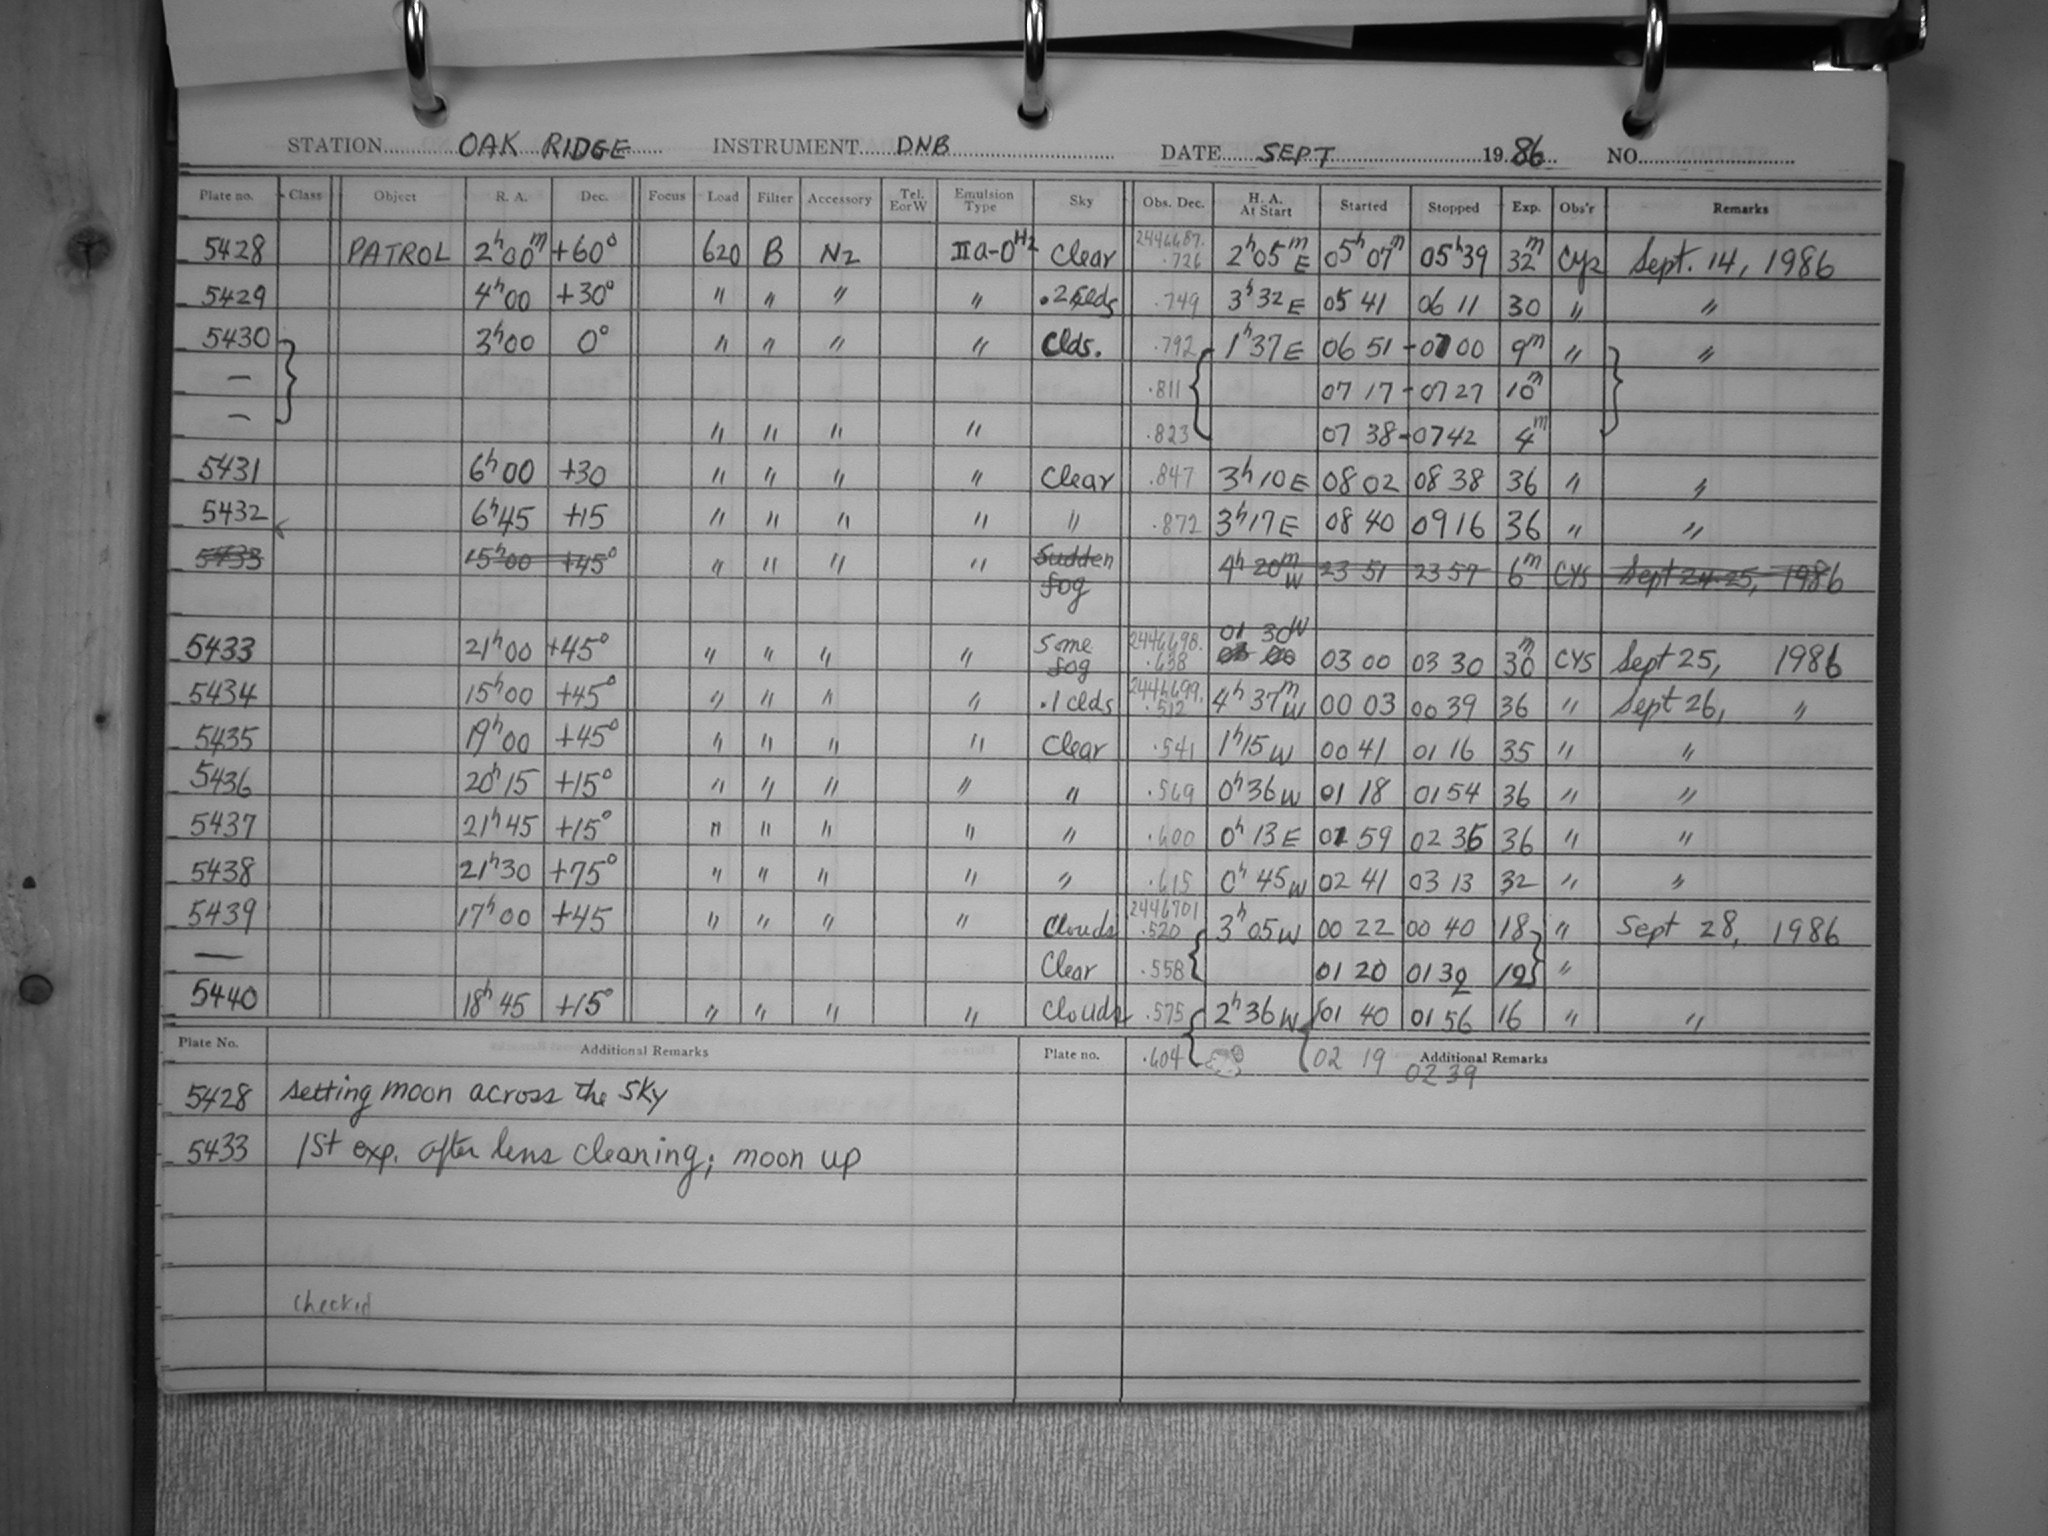 STATION OAK RIDGE INSTRUMENT DNB DATE SEPT 1986 NO.
Plate no. Class Object R. A. Dec. Focus Load Filter Accessory Tel. E or W Emulsion Type Sky Obs. Dec. H. A. At Start Started Stopped Exp. Obs'r Remarks
5428 PATROL 2h00m +60° 620 B N2 IIa-OH2 Clear 2446687.726 2h05mE 05h07m 05h39 32m CYS Sept. 14, 1986
5429 4h00 +30° " " " " .2 clds .749 3h32E 05 41 06 11 30 " "
5430 3h00 0° " " " " Clds. .792 1h37E 06 51-07 00 9m " "
— .811 07 17-07 27 10m
— " " " " .823 07 38-07 42 4m
5431 6h00 +30 " " " " Clear .847 3h10E 08 02 08 38 36 " "
5432 6h45 +15 " " " " " .872 3h17E 08 40 09 16 36 " "
5433 15h00 +45° " " " " Sudden fog 4h20mW 23 51 23 57 6m CYS Sept 24-25, 1986
5433 21h00 +45° " " " " Some fog 2446698.638 01 30W 03 00 03 30 30m CYS Sept 25, 1986
5434 15h00 +45° " " " " .1 clds 2446699.512 4h37mW 00 03 00 39 36 " Sept 26, "
5435 19h00 +45° " " " " Clear .541 1h15W 00 41 01 16 35 " "
5436 20h15 +15° " " " " " .569 0h36W 01 18 01 54 36 " "
5437 21h45 +15° " " " " " .600 0h13E 01 59 02 35 36 " "
5438 21h30 +75° " " " " " .615 0h45W 02 41 03 13 32 " "
5439 17h00 +45 " " " " Clouds 2446701.520 3h05W 00 22 00 40 18 " Sept 28, 1986
— Clear .558 01 20 01 32 12 "
5440 18h45 +15° " " " " Clouds .575 2h36W 01 40 01 56 16 " "
Plate No. Additional Remarks Plate no. .604 02 19 Additional Remarks
02 39
5428 setting moon across the sky
5433 1st exp. after lens cleaning; moon up
checked